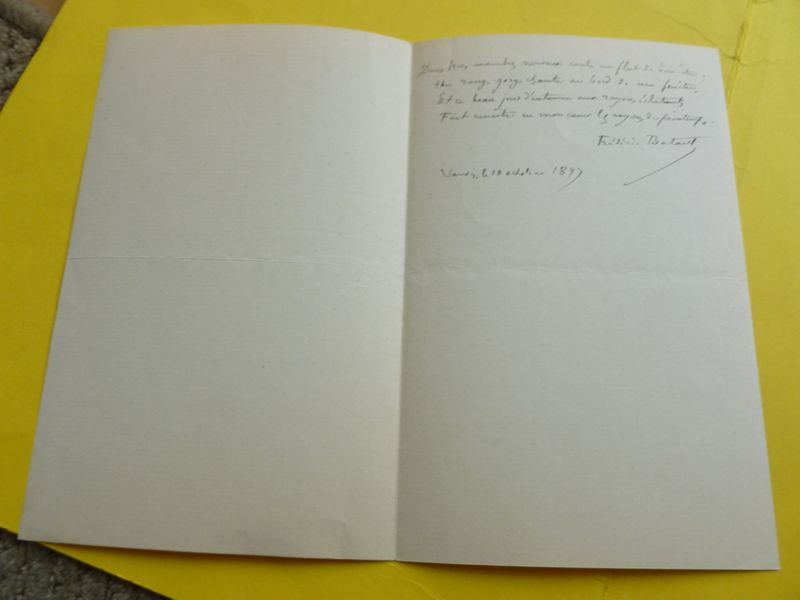 Dans mes membres nerveux coule un flot de bien-être ;
Un rouge-gorge chante au bord de ma fenêtre,
Et ce beau jour d'automne aux rayons éclatants
Fait renaître en mon cœur les rayons du printemps.
Frédéric Bataille
Vanves, le 10 octobre 1897